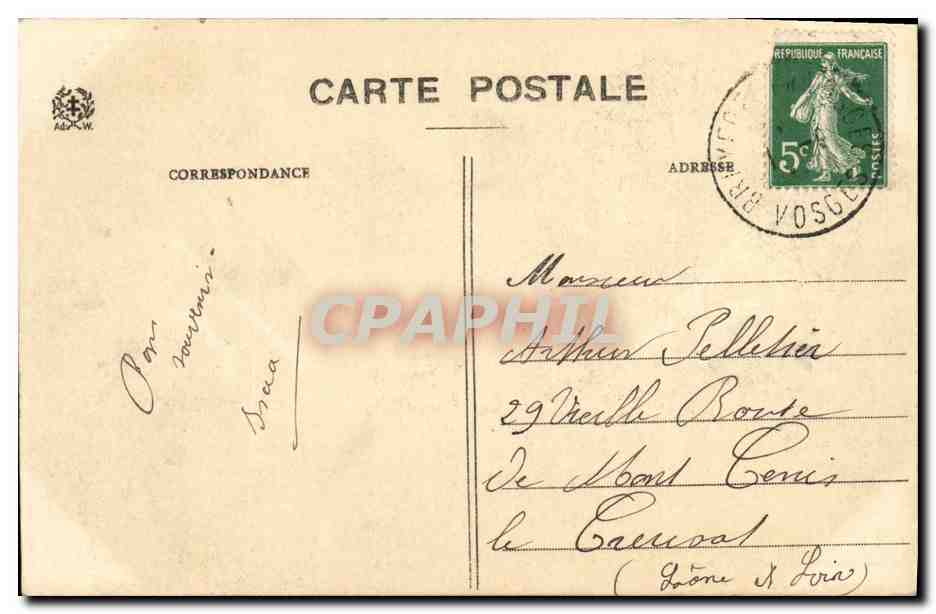 CARTE POSTALE
Ad. W.
CORRESPONDANCE
ADRESSE
REPUBLIQUE FRANÇAISE
5c
POSTES
BRUYERES
VOSGES
Bon
souvenir.
CPAPHIL
Monsieur
Arthur Pelletier
29 Vieille Route
de Mont Cenis
le Creusot
(Saône & Loire)